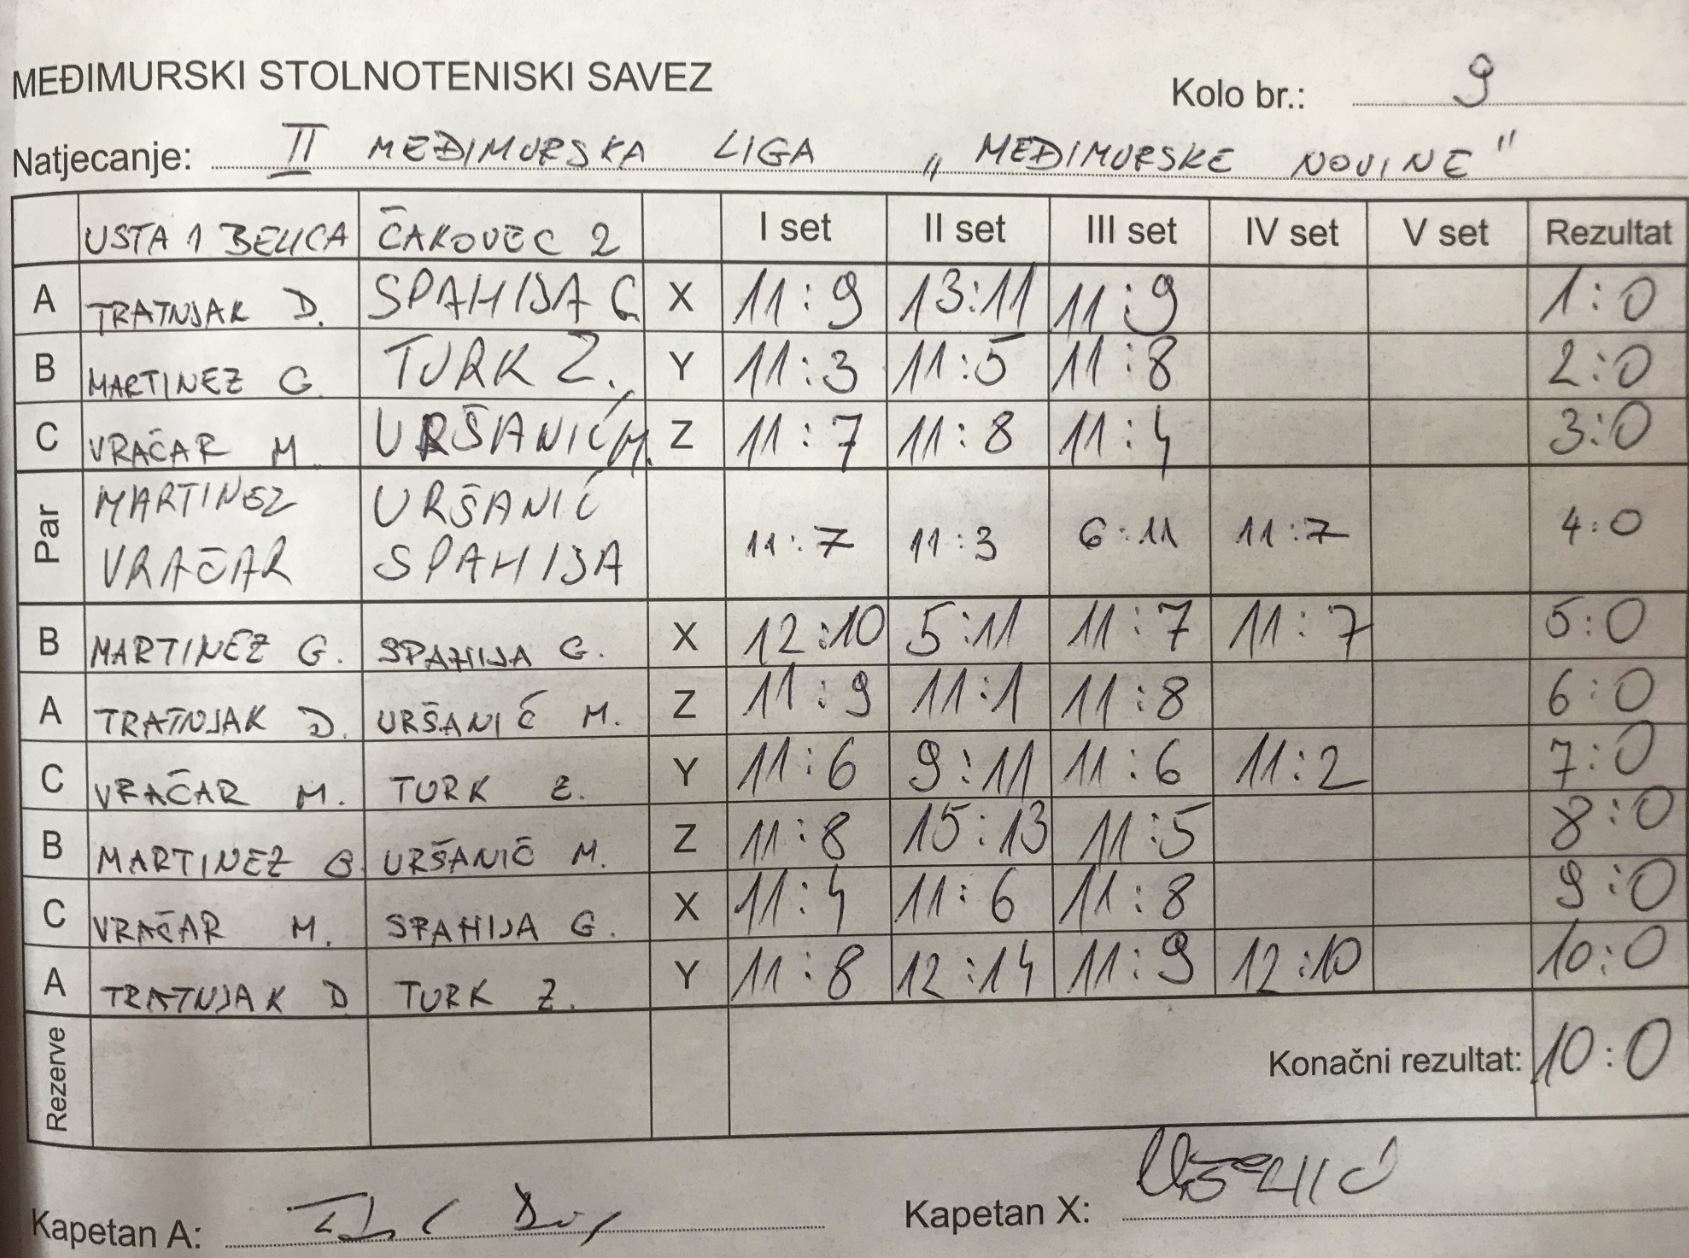 MEĐIMURSKI STOLNOTENISKI SAVEZ
Kolo br.: 9
Natjecanje: II MEĐIMURSKA LIGA „MEĐIMURSKE NOVINE"
USTA 1 BELICA ČAKOVEC 2 I set II set III set IV set V set Rezultat
A TRATNJAK D. SPAHIJA G. X 11:9 13:11 11:9 1:0
B MARTINEZ G. TURK Z. Y 11:3 11:5 11:8 2:0
C VRAČAR M. URŠANIĆ M. Z 11:7 11:8 11:4 3:0
Par MARTINEZ URŠANIĆ 11:7 11:3 6:11 11:7 4:0
VRAČAR SPAHIJA
B MARTINEZ G. SPAHIJA G. X 12:10 5:11 11:7 11:7 5:0
A TRATNJAK D. URŠANIĆ M. Z 11:9 11:1 11:8 6:0
C VRAČAR M. TURK Z. Y 11:6 9:11 11:6 11:2 7:0
B MARTINEZ G. URŠANIĆ M. Z 11:8 15:13 11:5 8:0
C VRAČAR M. SPAHIJA G. X 11:4 11:6 11:8 9:0
A TRATNJAK D TURK Z. Y 11:8 12:14 11:9 12:10 10:0
Rezerve Konačni rezultat: 10:0
Kapetan A: Kapetan X: